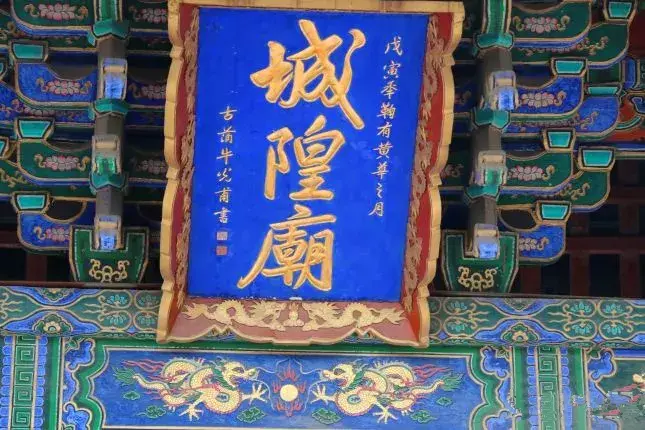 戊寅季鞠有黄华之月
城隍廟
古蒲牛光甫書